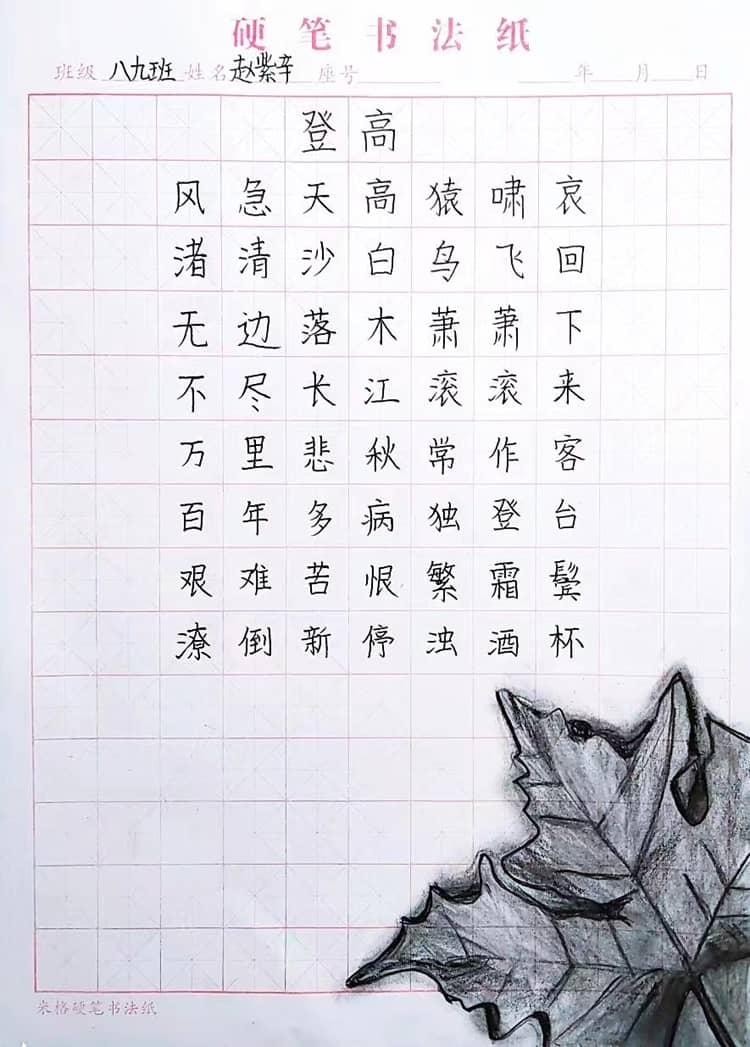 硬笔书法纸
班级 八九班 姓名 赵紫辛 座号 年 月 日
登高
风急天高猿啸哀
渚清沙白鸟飞回
无边落木萧萧下
不尽长江滚滚来
万里悲秋常作客
百年多病独登台
艰难苦恨繁霜鬓
潦倒新停浊酒杯
米格硬笔书法纸